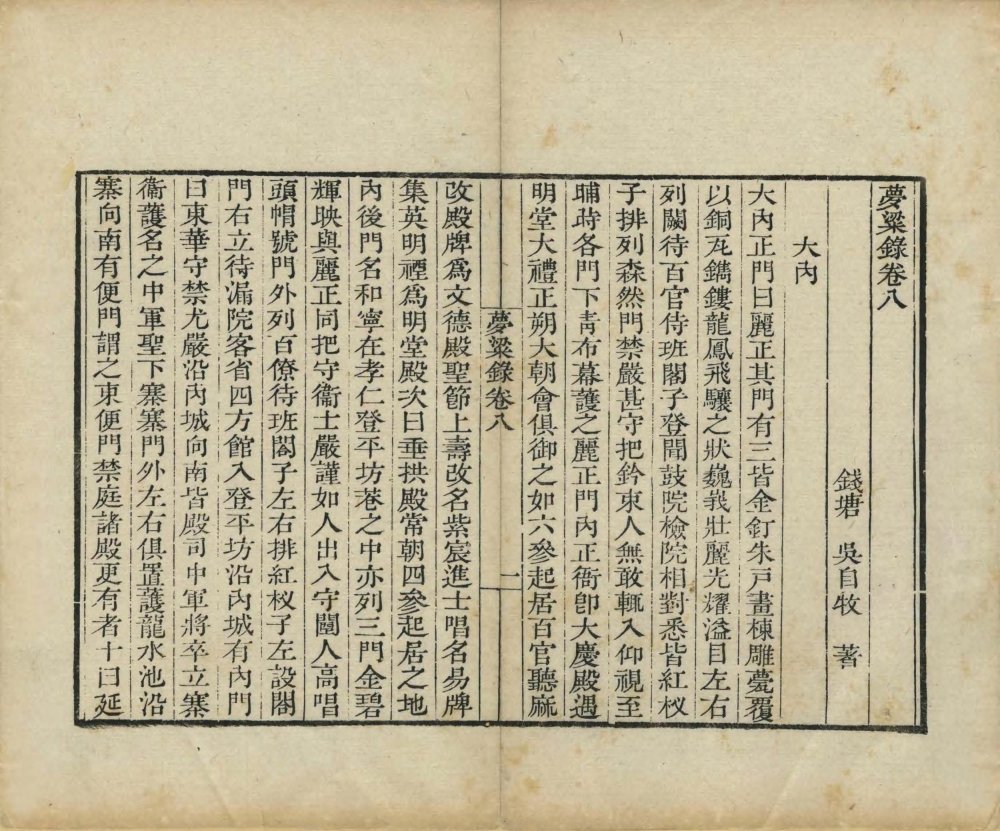 夢粱錄卷八
錢塘 吳自牧 著
大內
大內正門曰麗正其門有三皆金釘朱戸畫棟雕甍覆
以銅瓦鐫鏤龍鳳飛驤之狀巍峩壯麗光耀溢目左右
列闕待百官侍班閣子登聞鼓院檢院相對悉皆紅杈
子排列森然門禁嚴甚守把鈐束人無敢輒入仰視至
晡時各門下青布幕護之麗正門內正衙卽大慶殿遇
明堂大禮正朔大朝會俱御之如六參起居百官聽麻
夢粱錄卷八 一
改殿牌爲文德殿聖節上壽改名紫宸進士唱名易牌
集英明禋爲明堂殿次曰垂拱殿常朝四參起居之地
內後門名和寧在孝仁登平坊巷之中亦列三門金碧
輝映與麗正同把守衞士嚴謹如人出入守闉人高唱
頭帽號門外列百僚待班閤子左右排紅杈子左設閤
門右立待漏院客省四方館入登平坊沿內城有內門
曰東華守禁尤嚴沿內城向南皆殿司中軍將卒立寨
衞護名之中軍聖下寨寨門外左右俱置護龍水池沿
寨向南有便門謂之東便門禁庭諸殿更有者十曰延